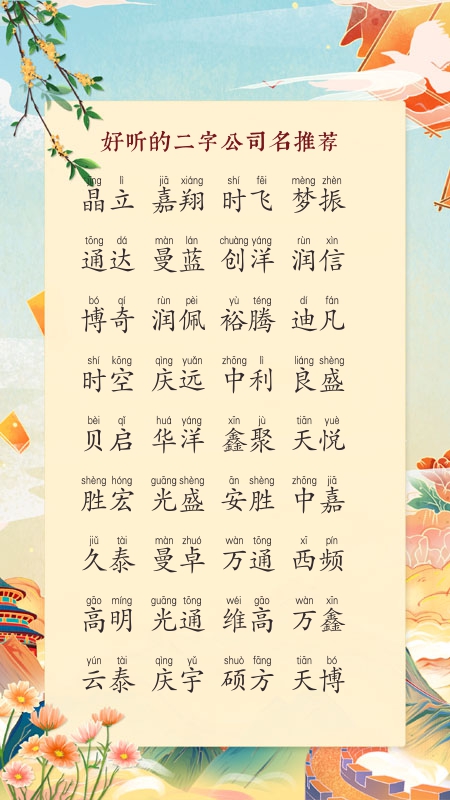 好听的二字公司名推荐
jīng lì jiā xiáng shí fēi mèng zhèn
晶立 嘉翔 时飞 梦振
tōng dá màn lán chuàng yáng rùn xìn
通达 曼蓝 创洋 润信
bó qí rùn pèi yù téng dí fán
博奇 润佩 裕腾 迪凡
shí kōng qìng yuǎn zhōng lì liáng shèng
时空 庆远 中利 良盛
bèi qǐ huá yáng xīn jù tiān yuè
贝启 华洋 鑫聚 天悦
shèng hóng guāng shèng ān shèng zhōng jiā
胜宏 光盛 安胜 中嘉
jiǔ tài màn zhuó wàn tōng xī pín
久泰 曼卓 万通 西频
gāo míng guāng tōng wéi gāo wàn xīn
高明 光通 维高 万鑫
yún tài qìng yǔ shuò fāng tiān bó
云泰 庆宇 硕方 天博